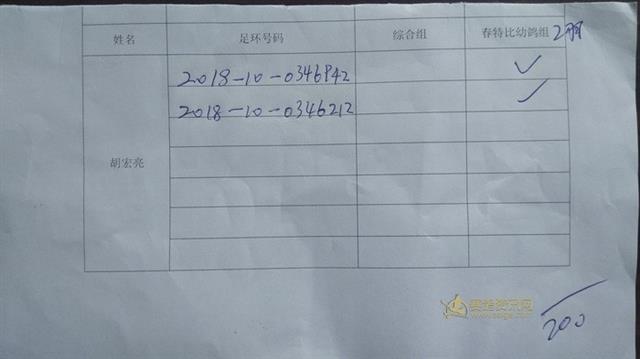 姓名 足环号码 综合组 春特比幼鸽组 2羽
2018-10-0346942 ✓
2018-10-0346212 ✓
胡宏亮
200